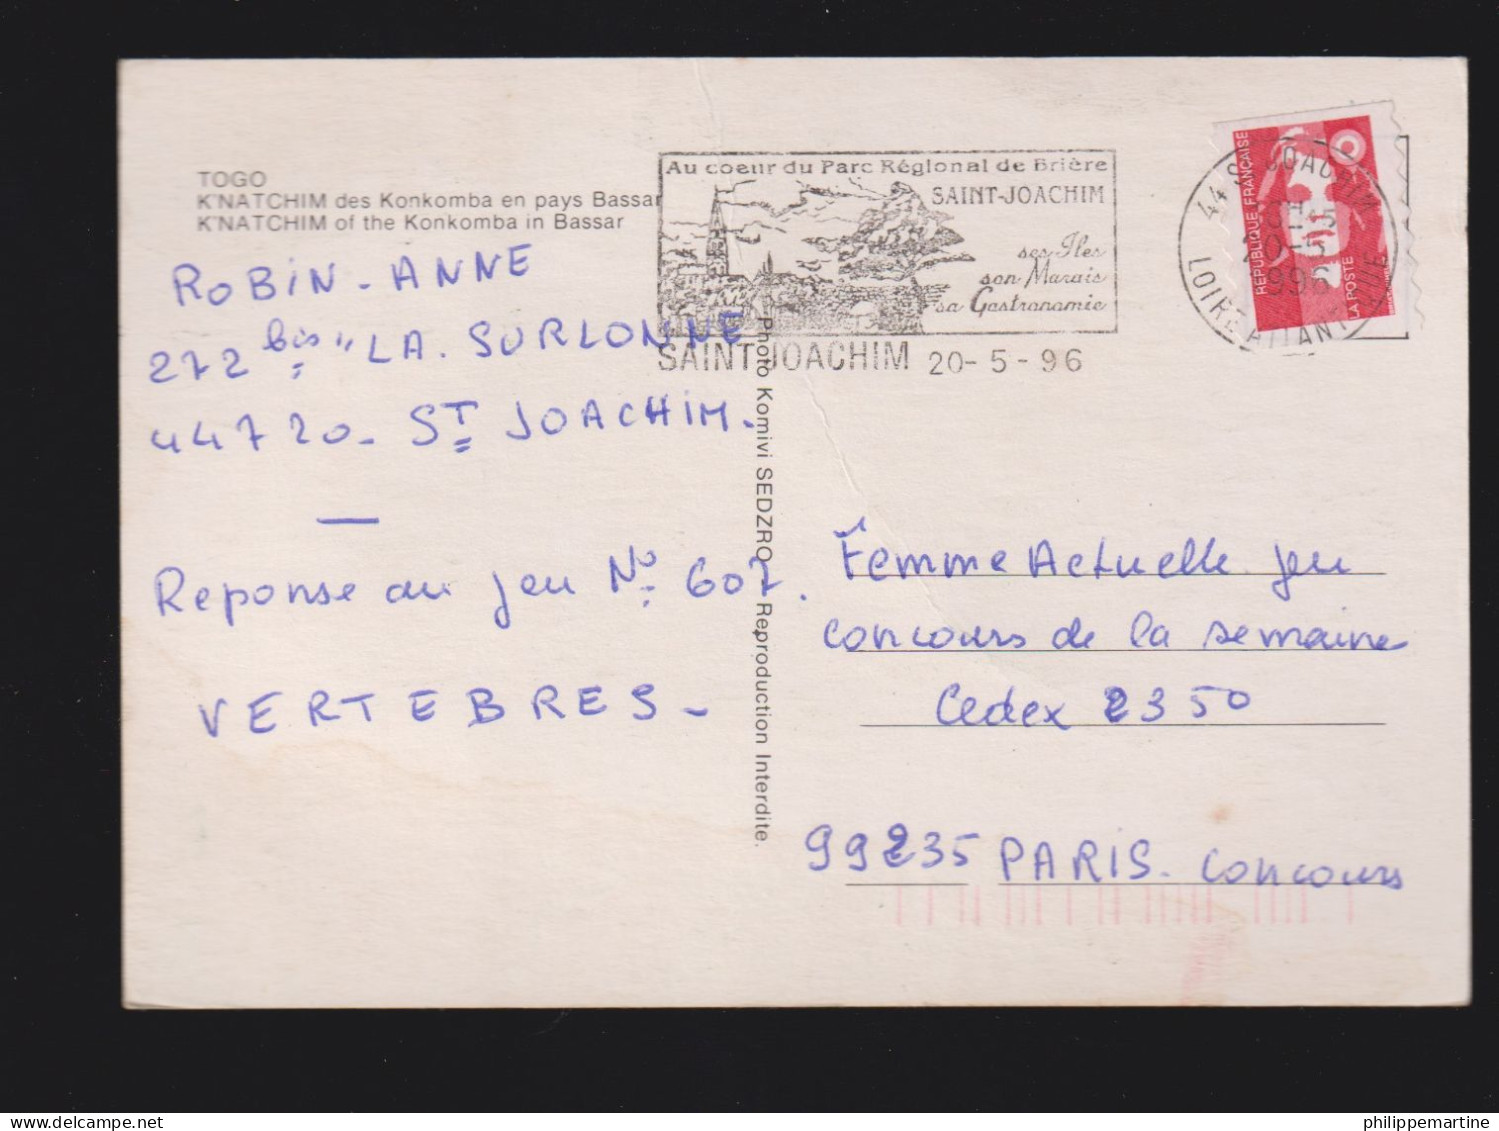 TOGO
K'NATCHIM des Konkomba en pays Bassar
K'NATCHIM of the Konkomba in Bassar
ROBIN-ANNE
272 bis "LA. SURLONNE
44720- ST JOACHIM.
Reponse au jeu No. 607.
VERTEBRES-
Photo Komivi SEDZRO - Reproduction Interdite.
Au coeur du Parc Régional de Brière
SAINT-JOACHIM
ses Iles
son Marais
sa Gastronomie
SAINT JOACHIM 20-5-96
44 ST JOACHIM
20-5
1996
LOIRE ATLANTIQUE
REPUBLIQUE FRANÇAISE
LA POSTE
Femme Actuelle jeu
concours de la semaine
Cedex 2350
99235 PARIS. concours
philippemartine